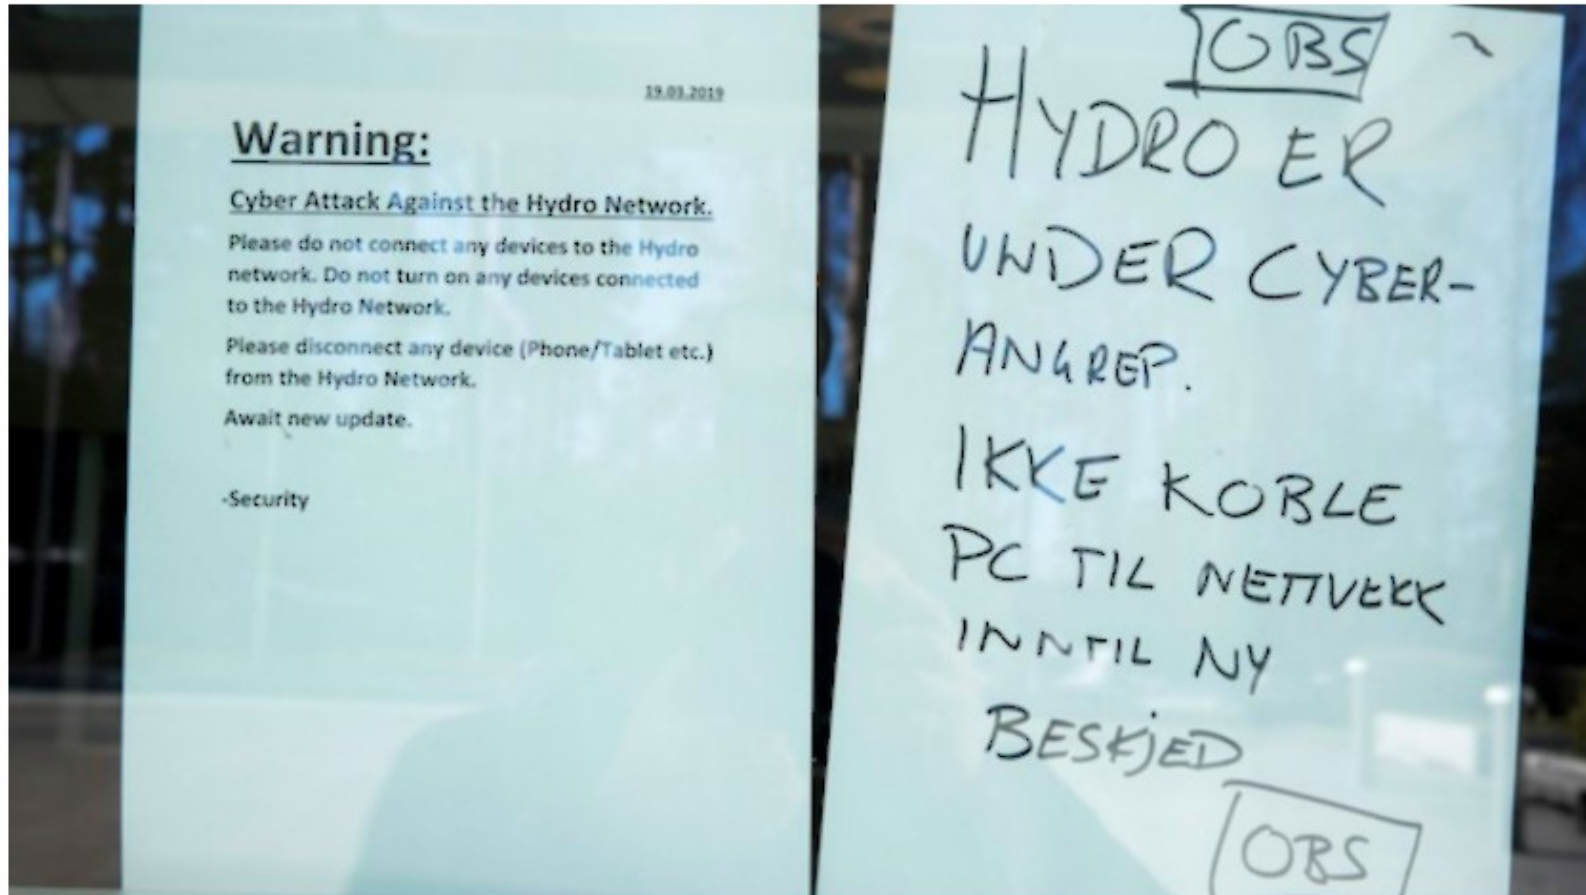 19.03.2019
Warning:
Cyber Attack Against the Hydro Network.
Please do not connect any devices to the Hydro
network. Do not turn on any devices connected
to the Hydro Network.
Please disconnect any device (Phone/Tablet etc.)
from the Hydro Network.
Await new update.
-Security
OBS
HYDRO ER
UNDER CYBER-
ANGREP.
IKKE KOBLE
PC TIL NETTVERK
INNTIL NY
BESKJED
OBS